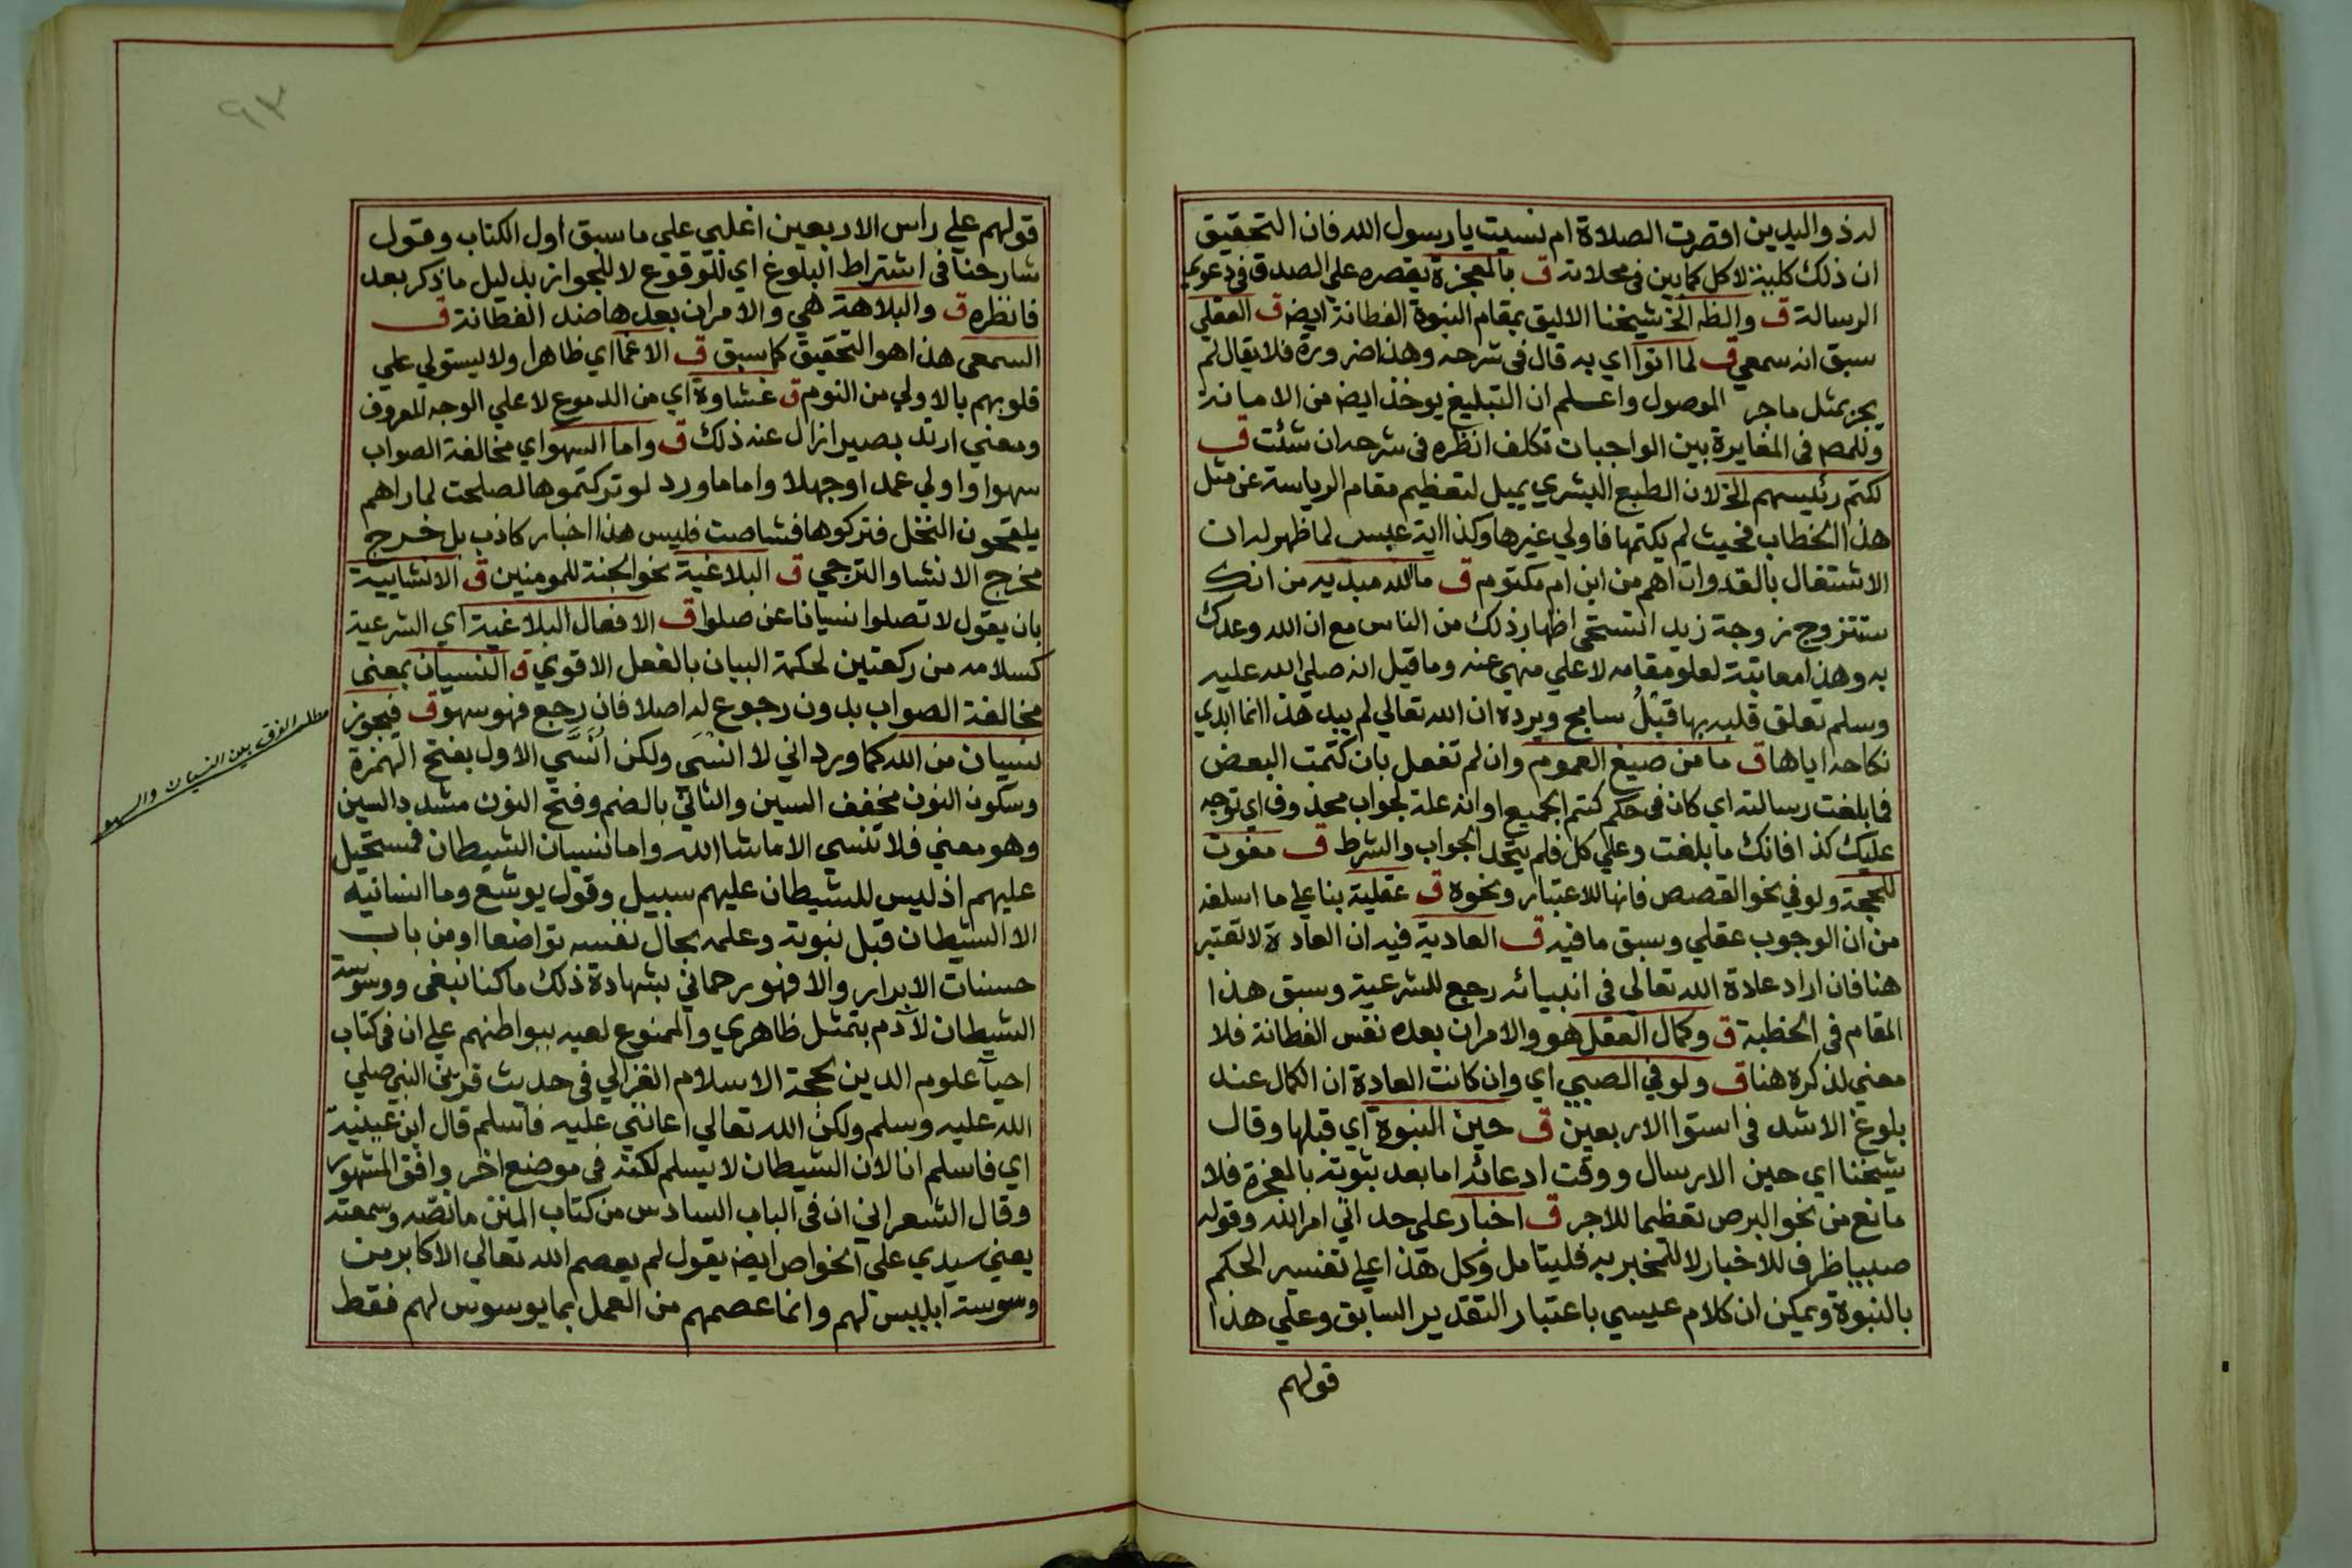 له ذو اليدين اقصرت الصلاة ام نسيت يا رسول الله فان التحقيق
ان ذلك كلية لا كل كما بين في محلاته ق بالمعجزة يقصره على الصدق في دعوي
الرسالة ق والظه الخ شيخنا الاليق بمقام النبوة الفطانة ايضه ق العقلي
سبق انه سمعي ق لما اتوا اي به قال في شرحه وهذا ضرورة فلا يقال لم
يجر بمثل ما جر الموصول واعلم ان التبليغ يوخذ ايضه من الامانة
وللمصه في المغايرة بين الواجبات تكلف انظره في شرحه ان شئت ق
لكتم رئيسهم الخ لان الطبع البشري يميل لتعظيم مقام الرياسة عن مثل
هذا الخطاب فحيث لم يكتمها فاولي غيرها وكذا اية عبس لما ظهر له ان
الاشتغال بالقدوات اهم من ابن ام مكتوم ق ما الله مبديه من انك
ستتزوج زوجة زيد استحى اظهار ذلك من الناس مع ان الله وعدك
به وهذا معاتبة لعلو مقامه لا علي منهي عنه وما قيل انه صلي الله عليه
وسلم تعلق قلبه بها قبل سامج ويرده ان الله تعالي لم يبد هذا انما ابدي
نكاحه اياها ق ما من صيغ العموم وان لم تفعل بان كتمت البعض
فما بلغت رسالته اي كان في حكم كتم الجميع او انه علة لجواب محذوف اي توجه
عليك كذا فانك ما بلغت وعلي كل فلم يتحد الجواب والشرط ق مفوت
للحجة ولو في نحو القصص فانها للاعتبار ونحوه ق عقلية بنا علي ما اسلفه
من ان الوجوب عقلي وسبق ما فيه ق العادية فيه ان العادة لا تعتبر
هنا فان اراد عادة الله تعالى في انبيائه رجع للشرعية وسبق هذا
المقام في الخطبة ق وكمال العقل هو والامران بعده نفس الفطانة فلا
معني لذكره هنا ق ولو في الصبي اي وان كانت العادة ان الكمال عند
بلوغ الاشد في استوا الاربعين ق حين النبوة اي قبلها وقال
شيخنا اي حين الارسال ووقت ادعائه اما بعد ثبوته بالمعجزة فلا
مانع من نحو البرص تعظيما للاجر ق اخبار على حد اتي امر الله وقوله
صبيا ظرف للاخبار لا للمخبر به فليتامل وكل هذا علي تفسير الحكم
بالنبوة ويمكن ان كلام عيسي باعتبار التقدير السابق وعلي هذا
قولهم
٩٣
قولهم علي راس الاربعين اغلبي علي ما سبق اول الكتاب وقول
شارحنا في اشتراط البلوغ اي للوقوع لا للجواز بدليل ما ذكر بعد
فانظره ق والبلاهة هي والامران بعدها ضد الفطانة ق
السمعي هذا هو التحقيق كما سبق ق الاغما اي ظاهرا ولا يستولي علي
قلوبهم بالاولي من النوم ق غشاوة اي من الدموع لا علي الوجه المعروف
ومعني ارتد بصيرا زال عنه ذلك ق واما السهو اي مخالفة الصواب
سهوا واولي عمدا وجهلا واما ما ورد لو تركتموها لصلحت لما راهم
يلقحون النخل فتركوها فشاصت فليس هذا اخبار كاذب بل خرج
مخرج الانشا والترجي ق البلاغية نحو الجنة للمومنين ق الانشايية
بان يقول لا تصلوا نسيانا عن صلوا ق الافعال البلاغية اي الشرعية
كسلامه من ركعتين لحكمة البيان بالفعل الاقوي ق النسيان بمعنى
مخالفة الصواب بدون رجوع له اصلا فان رجع فهو سهو ق فيجوز
نسيان من الله كما ورد اني لا انسى ولكن انسي الاول بفتح الهمزة
وسكون النون مخفف السين والثاني بالضم وفتح النون مشدد السين
وهو معني فلا تنسي الا ما شا الله واما نسيان الشيطان فمستحيل
عليهم اذ ليس للشيطان عليهم سبيل وقول يوشع وما انسانيه
الا الشيطان قبل نبوته وعلمه بحال نفسه تواضعا او من باب
حسنات الابرار والا فهو رحماني بشهادة ذلك ما كنا نبغي ووسوسة
الشيطان لآدم بتمثل ظاهري والممنوع لعبه ببواطنهم علي ان في كتاب
احيآ علوم الدين لحجة الاسلام الغزالي في حديث قرين النبي صلي
الله عليه وسلم ولكن الله تعالي اعانني عليه فاسلم قال ابن عيينة
اي فاسلم انا لان الشيطان لا يسلم لكنه في موضع اخر وافق المشهور
وقال الشعراني ان في الباب السادس من كتاب المنن ما نصه وسمعته
يعني سيدي علي الخواص ايضه يقول لم يعصم الله تعالي الاكابر من
وسوسة ابليس لهم وانما عصمهم من العمل بما يوسوس لهم فقط
مطلب الفرق بين النسيان والسهو